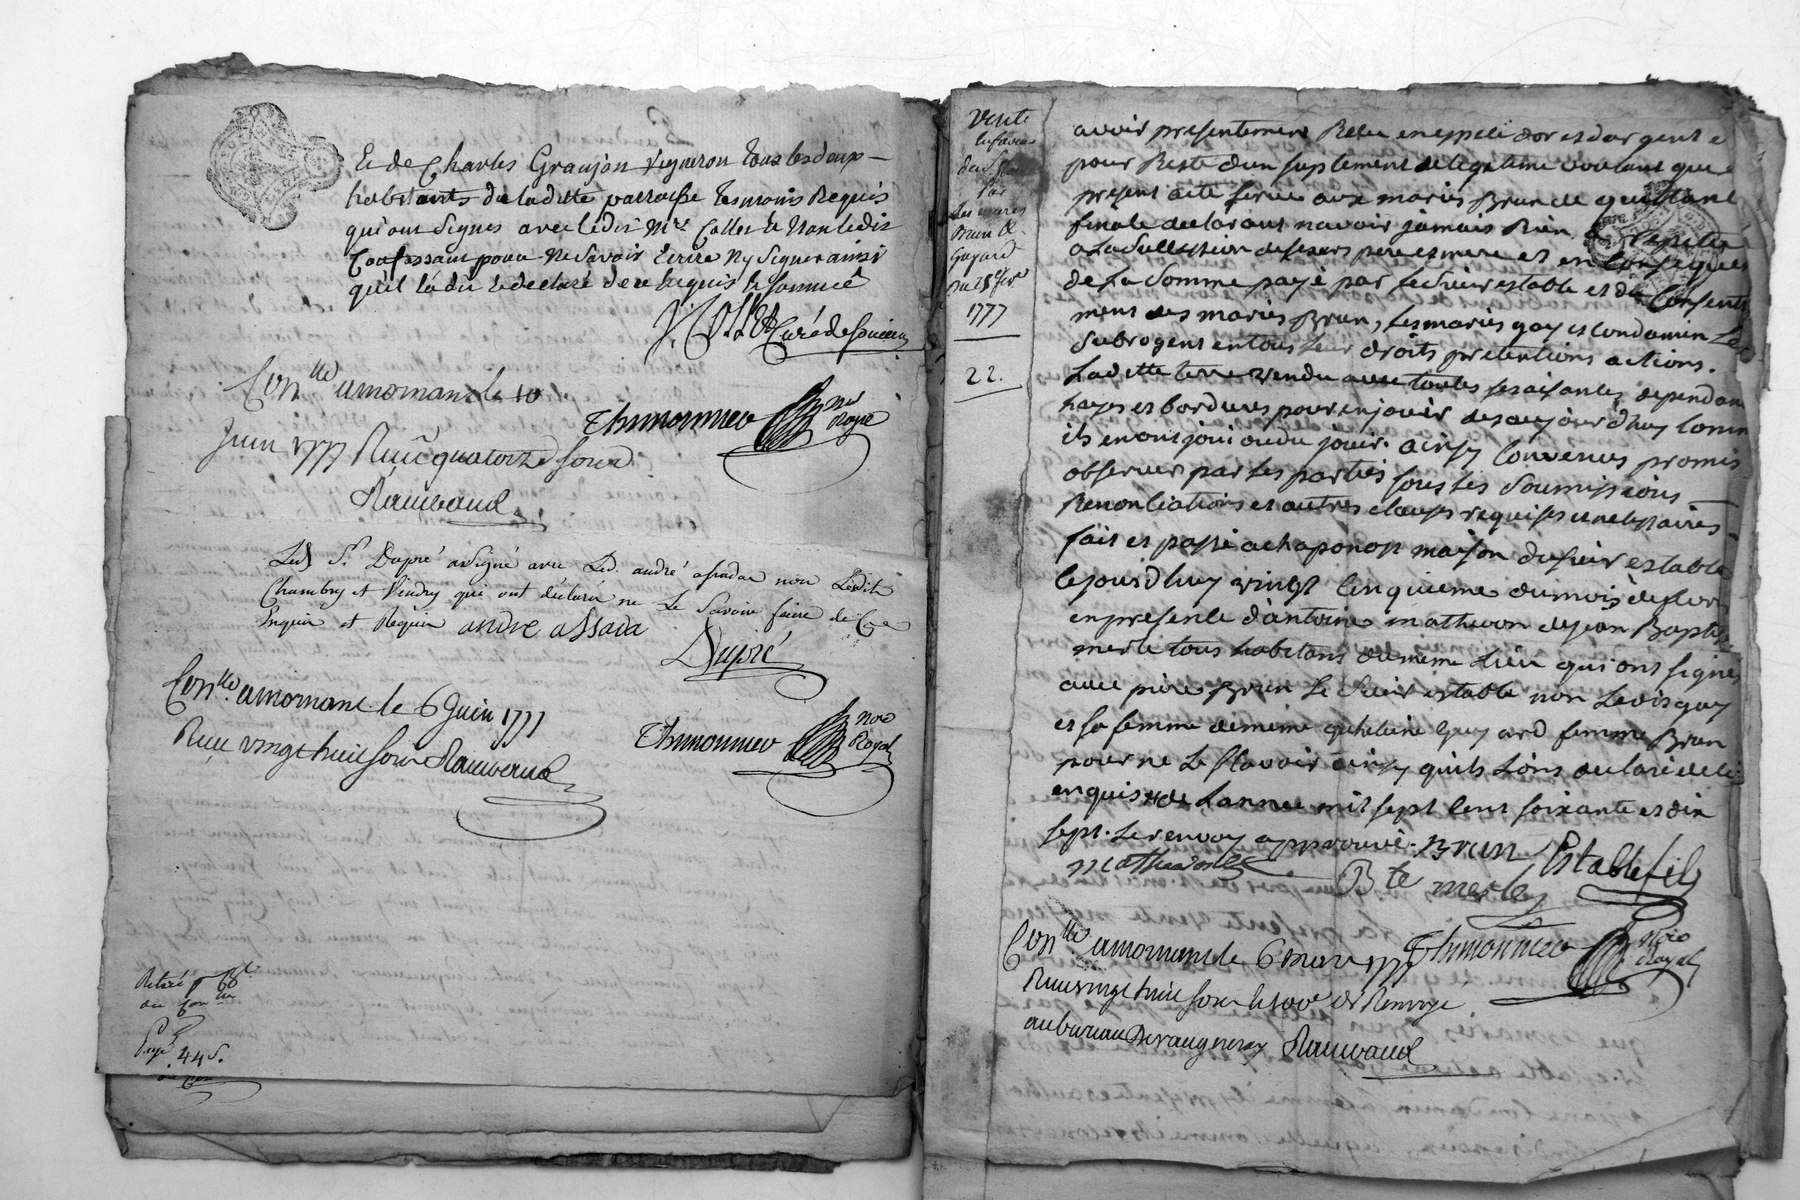 Et de Charles Graujon vigneron tous les deux
habitants de laditte parroisse temoins Requis
qui ont signés avec ledit Mre Collet et non ledit
pour ne savoir Ecrire ny signer ainsi
qu'il la dit et declaré de ce Requis et sommé
J. Collet Curé de
Conlle a mornant le 10
Thimonnier Nre Royal
Juin 1777 Reçu quatorze sous
Raimbaud
Led. Sr. Dupré a signé avec Led. andré assada non Ledit
Chambry et Vindry qui ont déclaré ne Le Savoir faire de Ce
Enquis et Requis andré assada
Dupré
Conlle a mornant le 6 Juin 1777
Thimonnier Nore Royal
Reçu vingt huit sous Raimbaud
44 s.
Vente
Les mariés
Brun &
Guyard
Du 25 fer
1777
22.
avoir presentement Reçu en espece d'or et d'argent et
pour Reste d'un suplement de legitime voulant que
present acte serve aux mariés Brun de quittance
finale declarant n'avoir jamais Rien
a La succession de ses pere et mere et en Conseque
de La Somme payé par Le Sieur estable et du Consente
ment des mariés Brun, Les mariés gay et Condamin Le
Subrogent en tous Leur droits pretentions actions.
Laditte terre vendu avec toutes ses aisances dependan
hayes et bordures pour en jouir des aujourd'huy Comm
ils en ont joui ou du jouir. ainsy Convenus promis
observer par Les parties sous Les Soumissions
Renonciations et autres clauses requises et necessaires
fait et passé a chaponost maison du sieur estable
Cejourd'huy vingt Cinquieme du mois de fevri
en presence d'antoine mathevon de jean Baptis
merle tous habitans du même Lieu qui ont signés
avec piere Brun Le Sieur estable non Ledit gay
et sa femme de meme qu'helaine Guyard femme Brun
pour ne Le sçavoir ainsy qu'ils L'ons declaré de ce
enquis de L'année mil sept Cent soixante et dix
sept. Le renvoy approuvé. Brun Estable fils
mathevon
Bte merle
Conlle a mornant le 6 mars 1777 Thimonnier Nore Royal
Reçu vingt huit sous le 100e et Renvoyé
au bureau de vaugneray Raimbaud